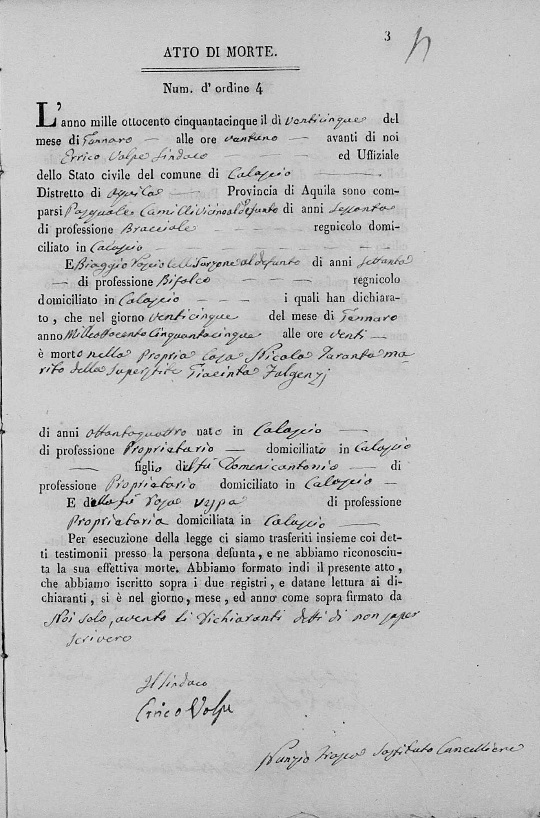 3
ATTO DI MORTE.
Num. d' ordine 4
L'anno mille ottocento cinquantacinque il dì venticinque del
mese di Gennaro — alle ore ventuno — avanti di noi
Errico Volpe Sindaco ed Uffiziale
dello Stato civile del comune di Calascio
Distretto di Aquila — Provincia di Aquila sono com-
parsi Pasquale Camilli Vicino al Defunto di anni Sessanta
di professione Bracciale regnicolo domi-
ciliato in Calascio
E Biaggio al defunto di anni Settanta
— di professione Bifolco regnicolo
domiciliato in Calascio i quali han dichiara-
to, che nel giorno venticinque del mese di Gennaro
anno Milleottocento Cinquantacinque alle ore venti —
è morto nella Propria Casa Nicola Taranta ma
rito della Superstite Giacinta Fulgenzj
di anni ottantaquattro nato in Calascio —
di professione Proprietario — domiciliato in Calascio
— figlio del fù Domenicantonio — di
professione Proprietario domiciliato in Calascio —
E della fù Rosa di professione
Proprietaria domiciliata in Calascio —
Per esecuzione della legge ci siamo trasferiti insieme coi det-
ti testimonii presso la persona defunta, e ne abbiamo riconosciu-
ta la sua effettiva morte. Abbiamo formato indi il presente atto,
che abbiamo iscritto sopra i due registri, e datane lettura ai di-
chiaranti, si è nel giorno, mese, ed anno come sopra firmato da
Noi solo, avento li Dichiaranti detti di non saper
scrivere
Il Sindaco
Errico Volpe
Nunzio Sostituto Cancelliere